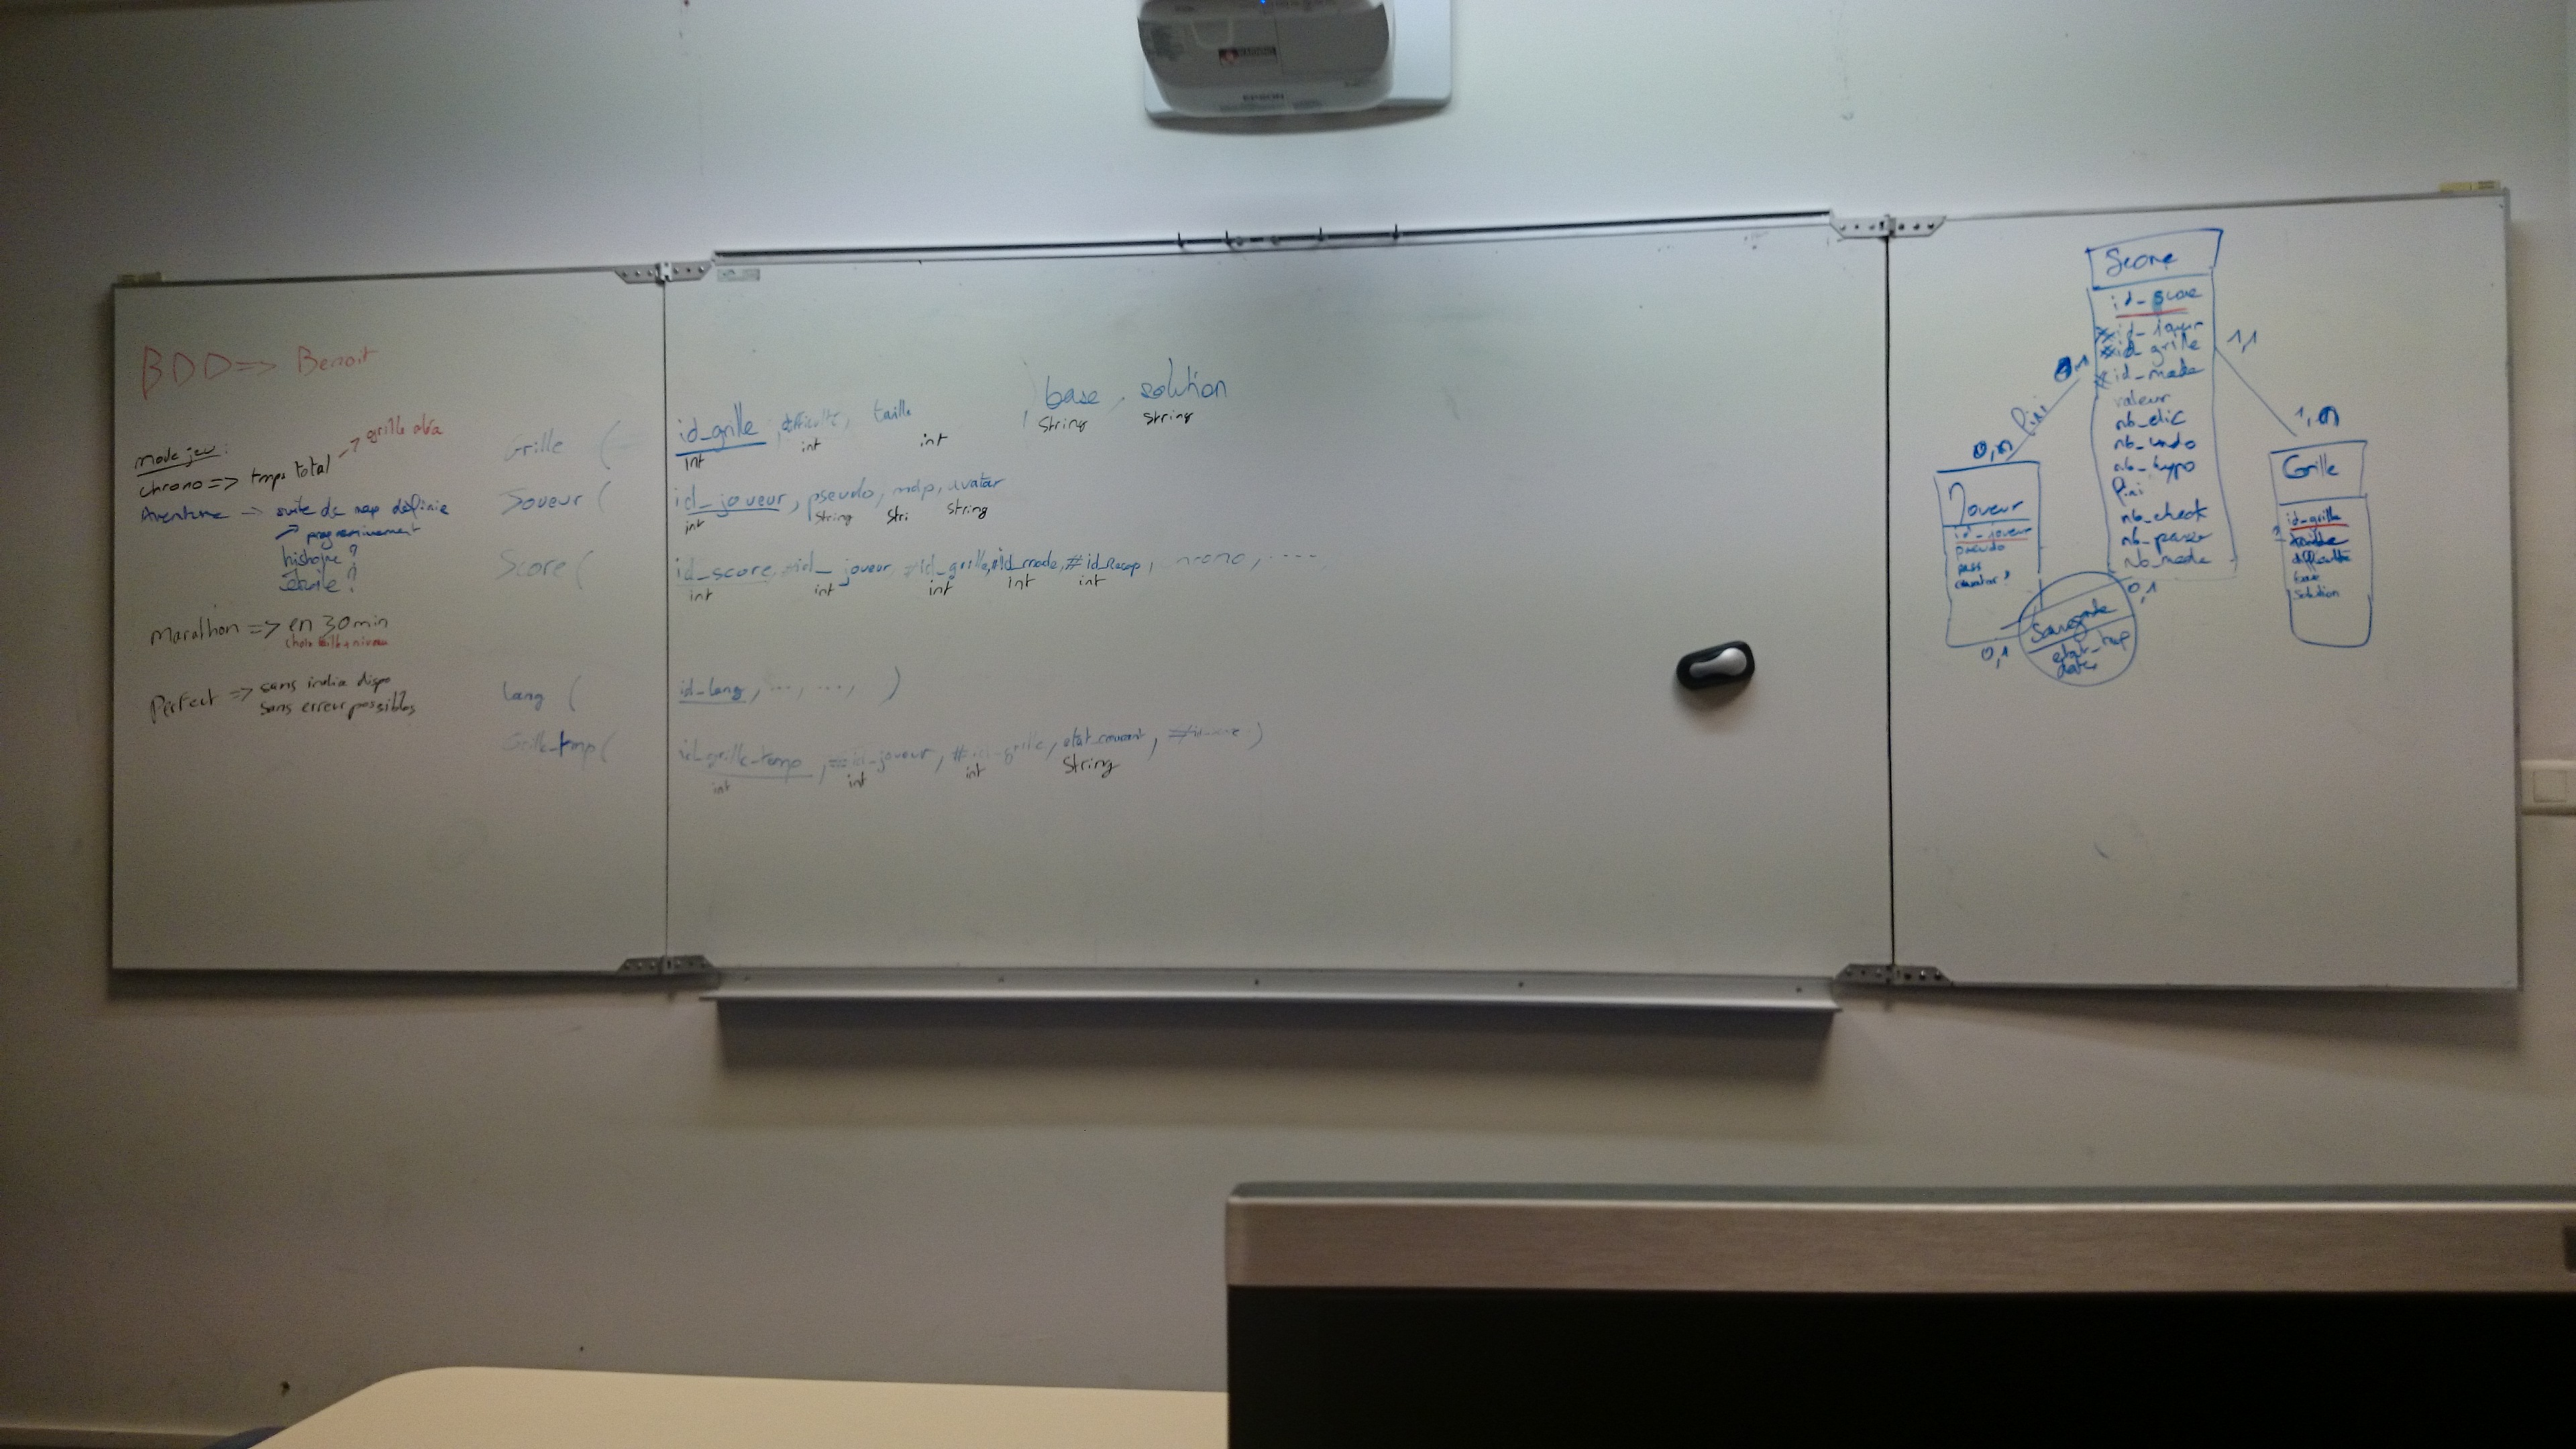 EPSON
BDD => Benoit
mode jeu :
chrono => tmps total
Aventure -> suite de map définie
histoire ?
étoile ?
Marathon => en 30 min
Perfect => sans indice dispo
sans erreur possibles
Grille ( id_grille, difficulté, taille , base, solution
int int int String String
Joueur ( id_joueur, pseudo, mdp, avatar
int String Stri String
Score ( id_score, #id_joueur, #id_grille, #id_mode, #id_Recap, chrono, ....
int int int int int
Lang ( id_lang, ..., ..., )
Grille_tmp ( id_grille_temp, #id_joueur, #id_grille, etat_courant, )
int int int String
Score
id_score
#id_joueur
#id_grille
#id_mode
valeur
nb_clic
nb_undo
nb_hypo
fini
nb_check
nb_mode
0,1
1,1
fini
0,n
1,n
Joueur
id_joueur
pseudo
pass
avatar?
Grille
id_grille
difficulté
base
solution
0,1
0,1
Sauvegarde
etat_map
date